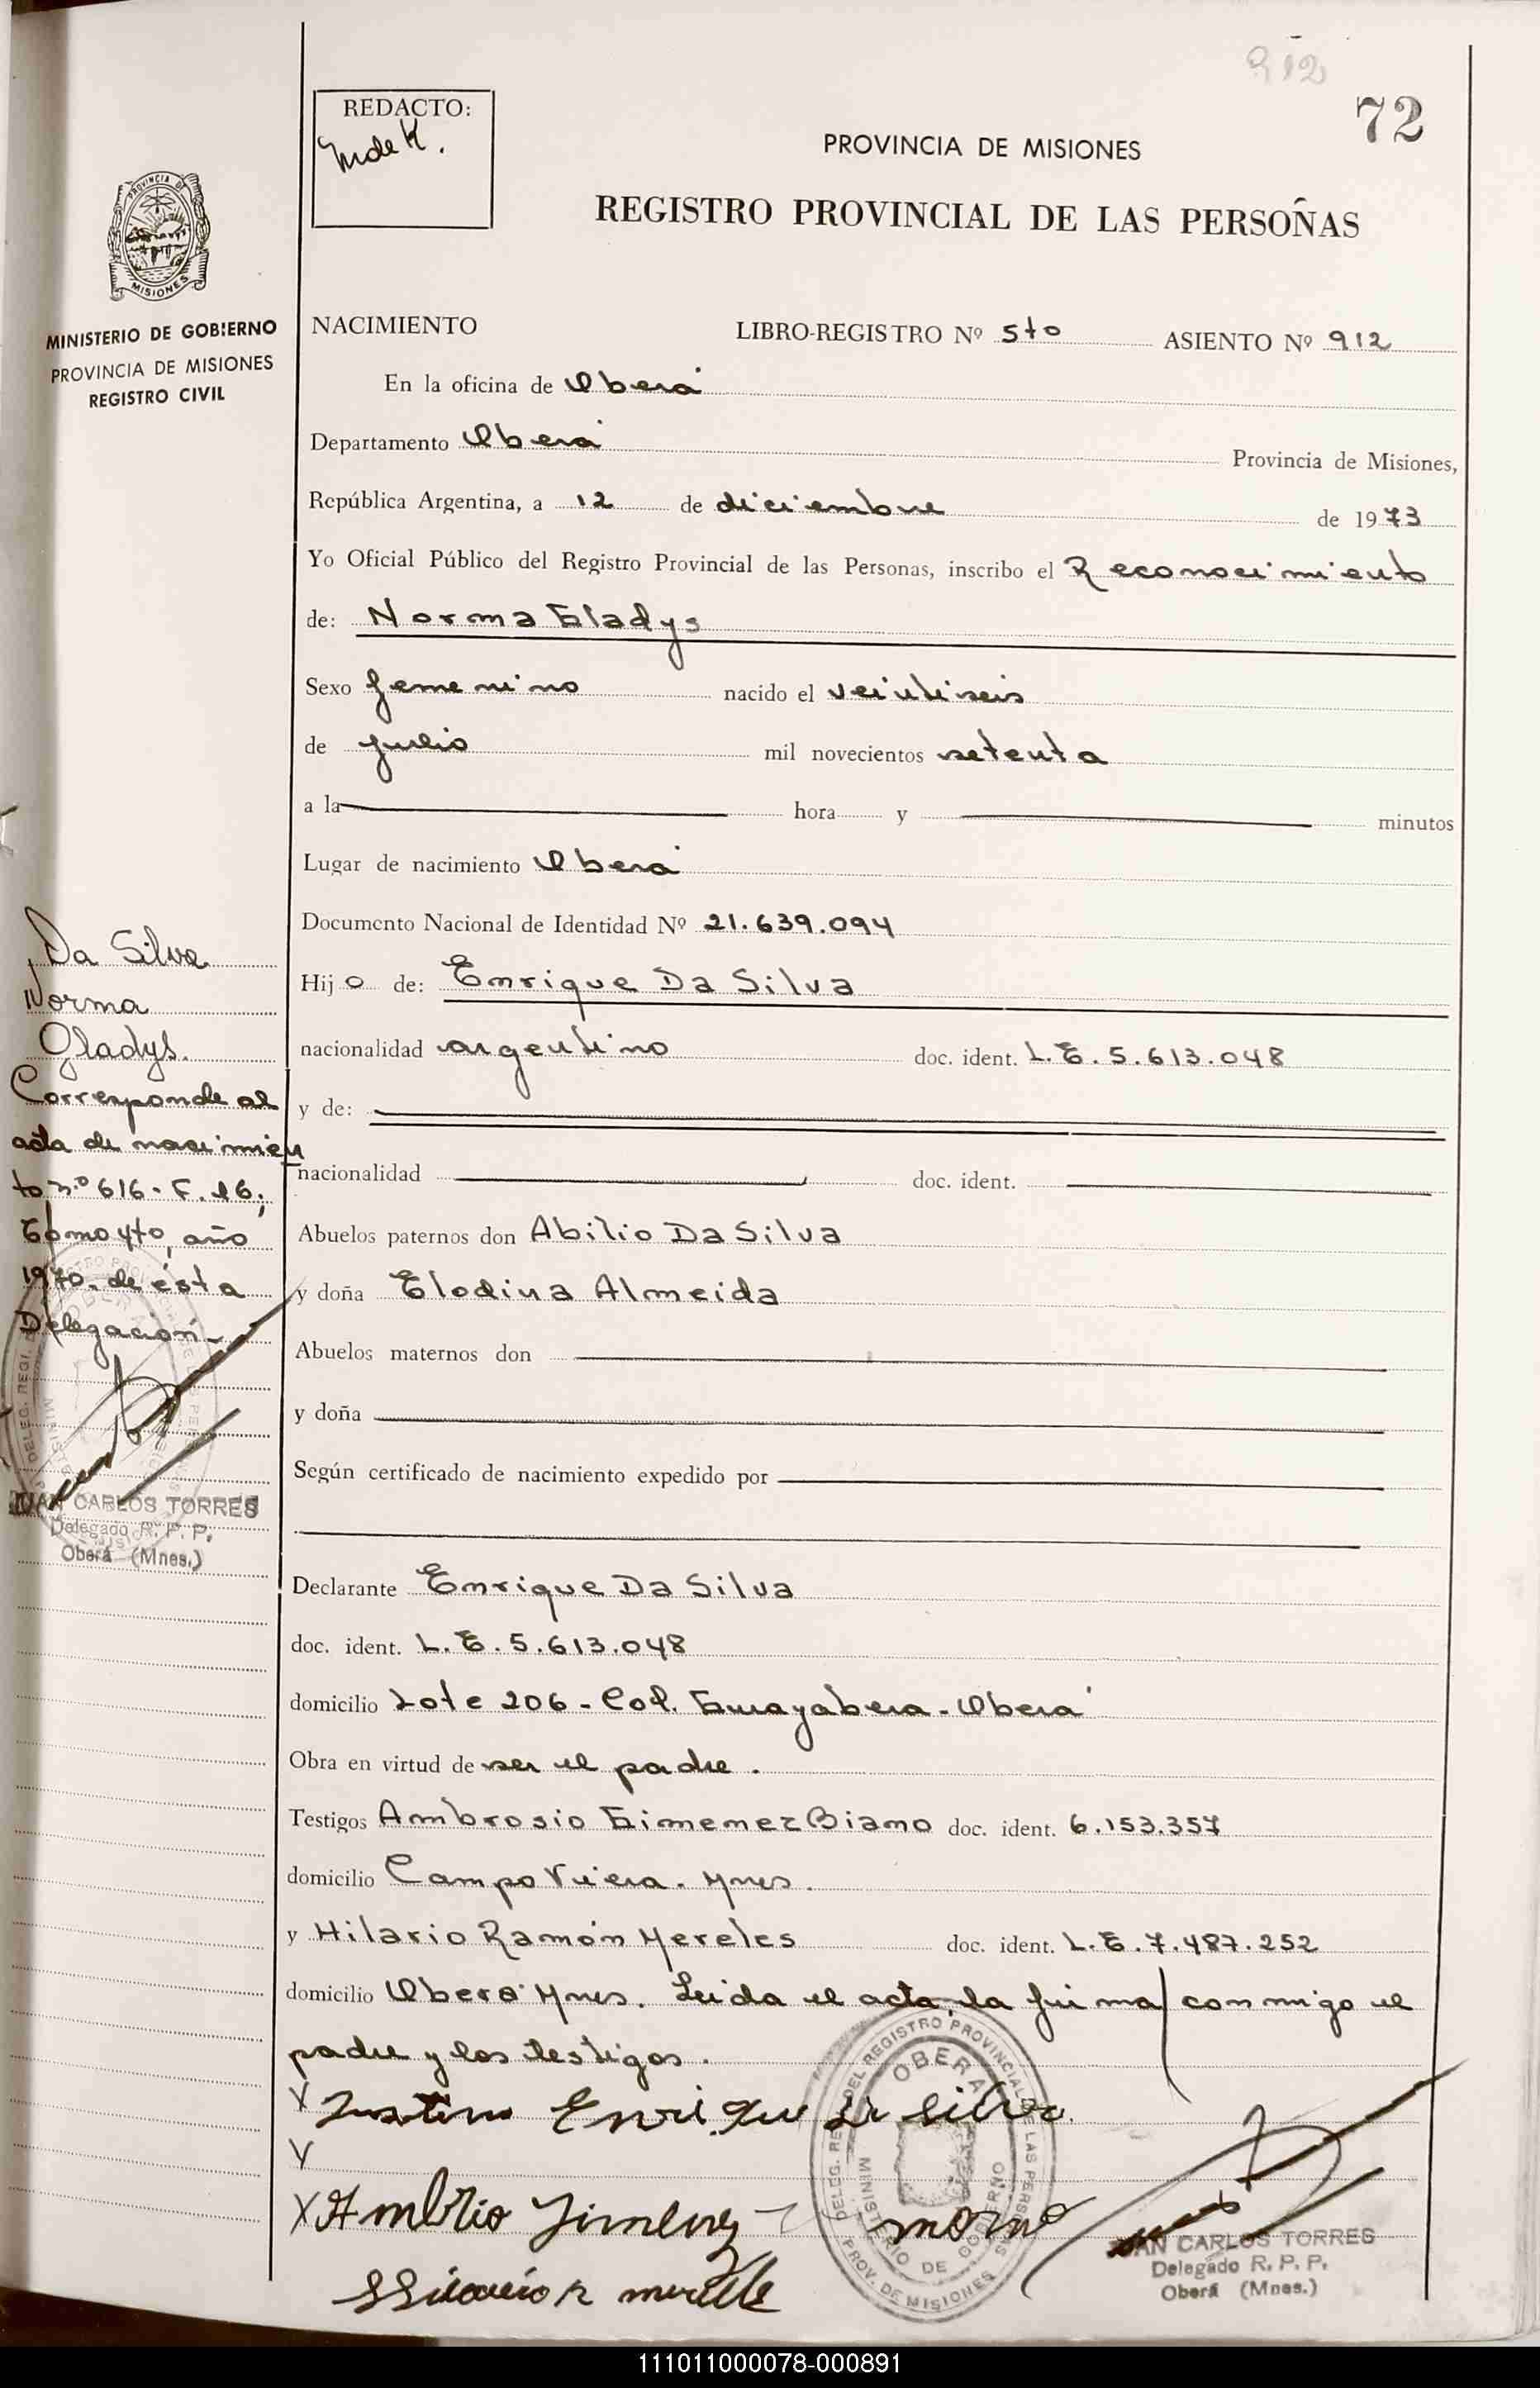 912
72
REDACTO:
PROVINCIA DE MISIONES
REGISTRO PROVINCIAL DE LAS PERSOÑAS
PROVINCIA DE
MISIONES
MINISTERIO DE GOBIERNO
PROVINCIA DE MISIONES
REGISTRO CIVIL
NACIMIENTO LIBRO-REGISTRO Nº 5to ASIENTO Nº 912
En la oficina de Oberá
Departamento Oberá Provincia de Misiones,
República Argentina, a 12 de diciembre de 1973
Yo Oficial Público del Registro Provincial de las Personas, inscribo el Reconocimiento
de: Norma Gladys
Sexo femenino nacido el veintiseis
de julio mil novecientos setenta
a la hora y minutos
Lugar de nacimiento Oberá
Documento Nacional de Identidad Nº 21.639.094
Hijo de: Enrique Da Silva
nacionalidad argentino doc. ident. L.E. 5.613.048
y de:
nacionalidad doc. ident.
Abuelos paternos don Abilio Da Silva
y doña Elodina Almeida
Abuelos maternos don
y doña
Según certificado de nacimiento expedido por
Declarante Enrique Da Silva
doc. ident. L.E. 5.613.048
domicilio Lote 206 - Col. Guayabera - Oberá
Obra en virtud de ser el padre.
Testigos Ambrosio Gimenez Biamo doc. ident. 6.153.357
domicilio Campo Viera. Mnes.
y Hilario Ramón Mereles doc. ident. L.E. 7.487.252
domicilio Oberá Mnes. Leida el acta, la firma conmigo el
padre y los testigos.
Enrique da silva
Jimenez
Da Silva
Norma
Gladys.
Corresponde al
acta de nacimien
to nº 616 - F. 16,
Tomo 4to, año
1970. de ésta
Delegación
JUAN CARLOS TORRES
Delegado R. P. P.
Oberá (Mnes.)
DELEG. REG. DEL REGISTRO PROVINCIAL DE LAS PERSONAS
OBERA
MINISTERIO DE GOBIERNO
PROV. DE MISIONES
JUAN CARLOS TORRES
Delegado R. P. P.
Oberá (Mnes.)
111011000078-000891